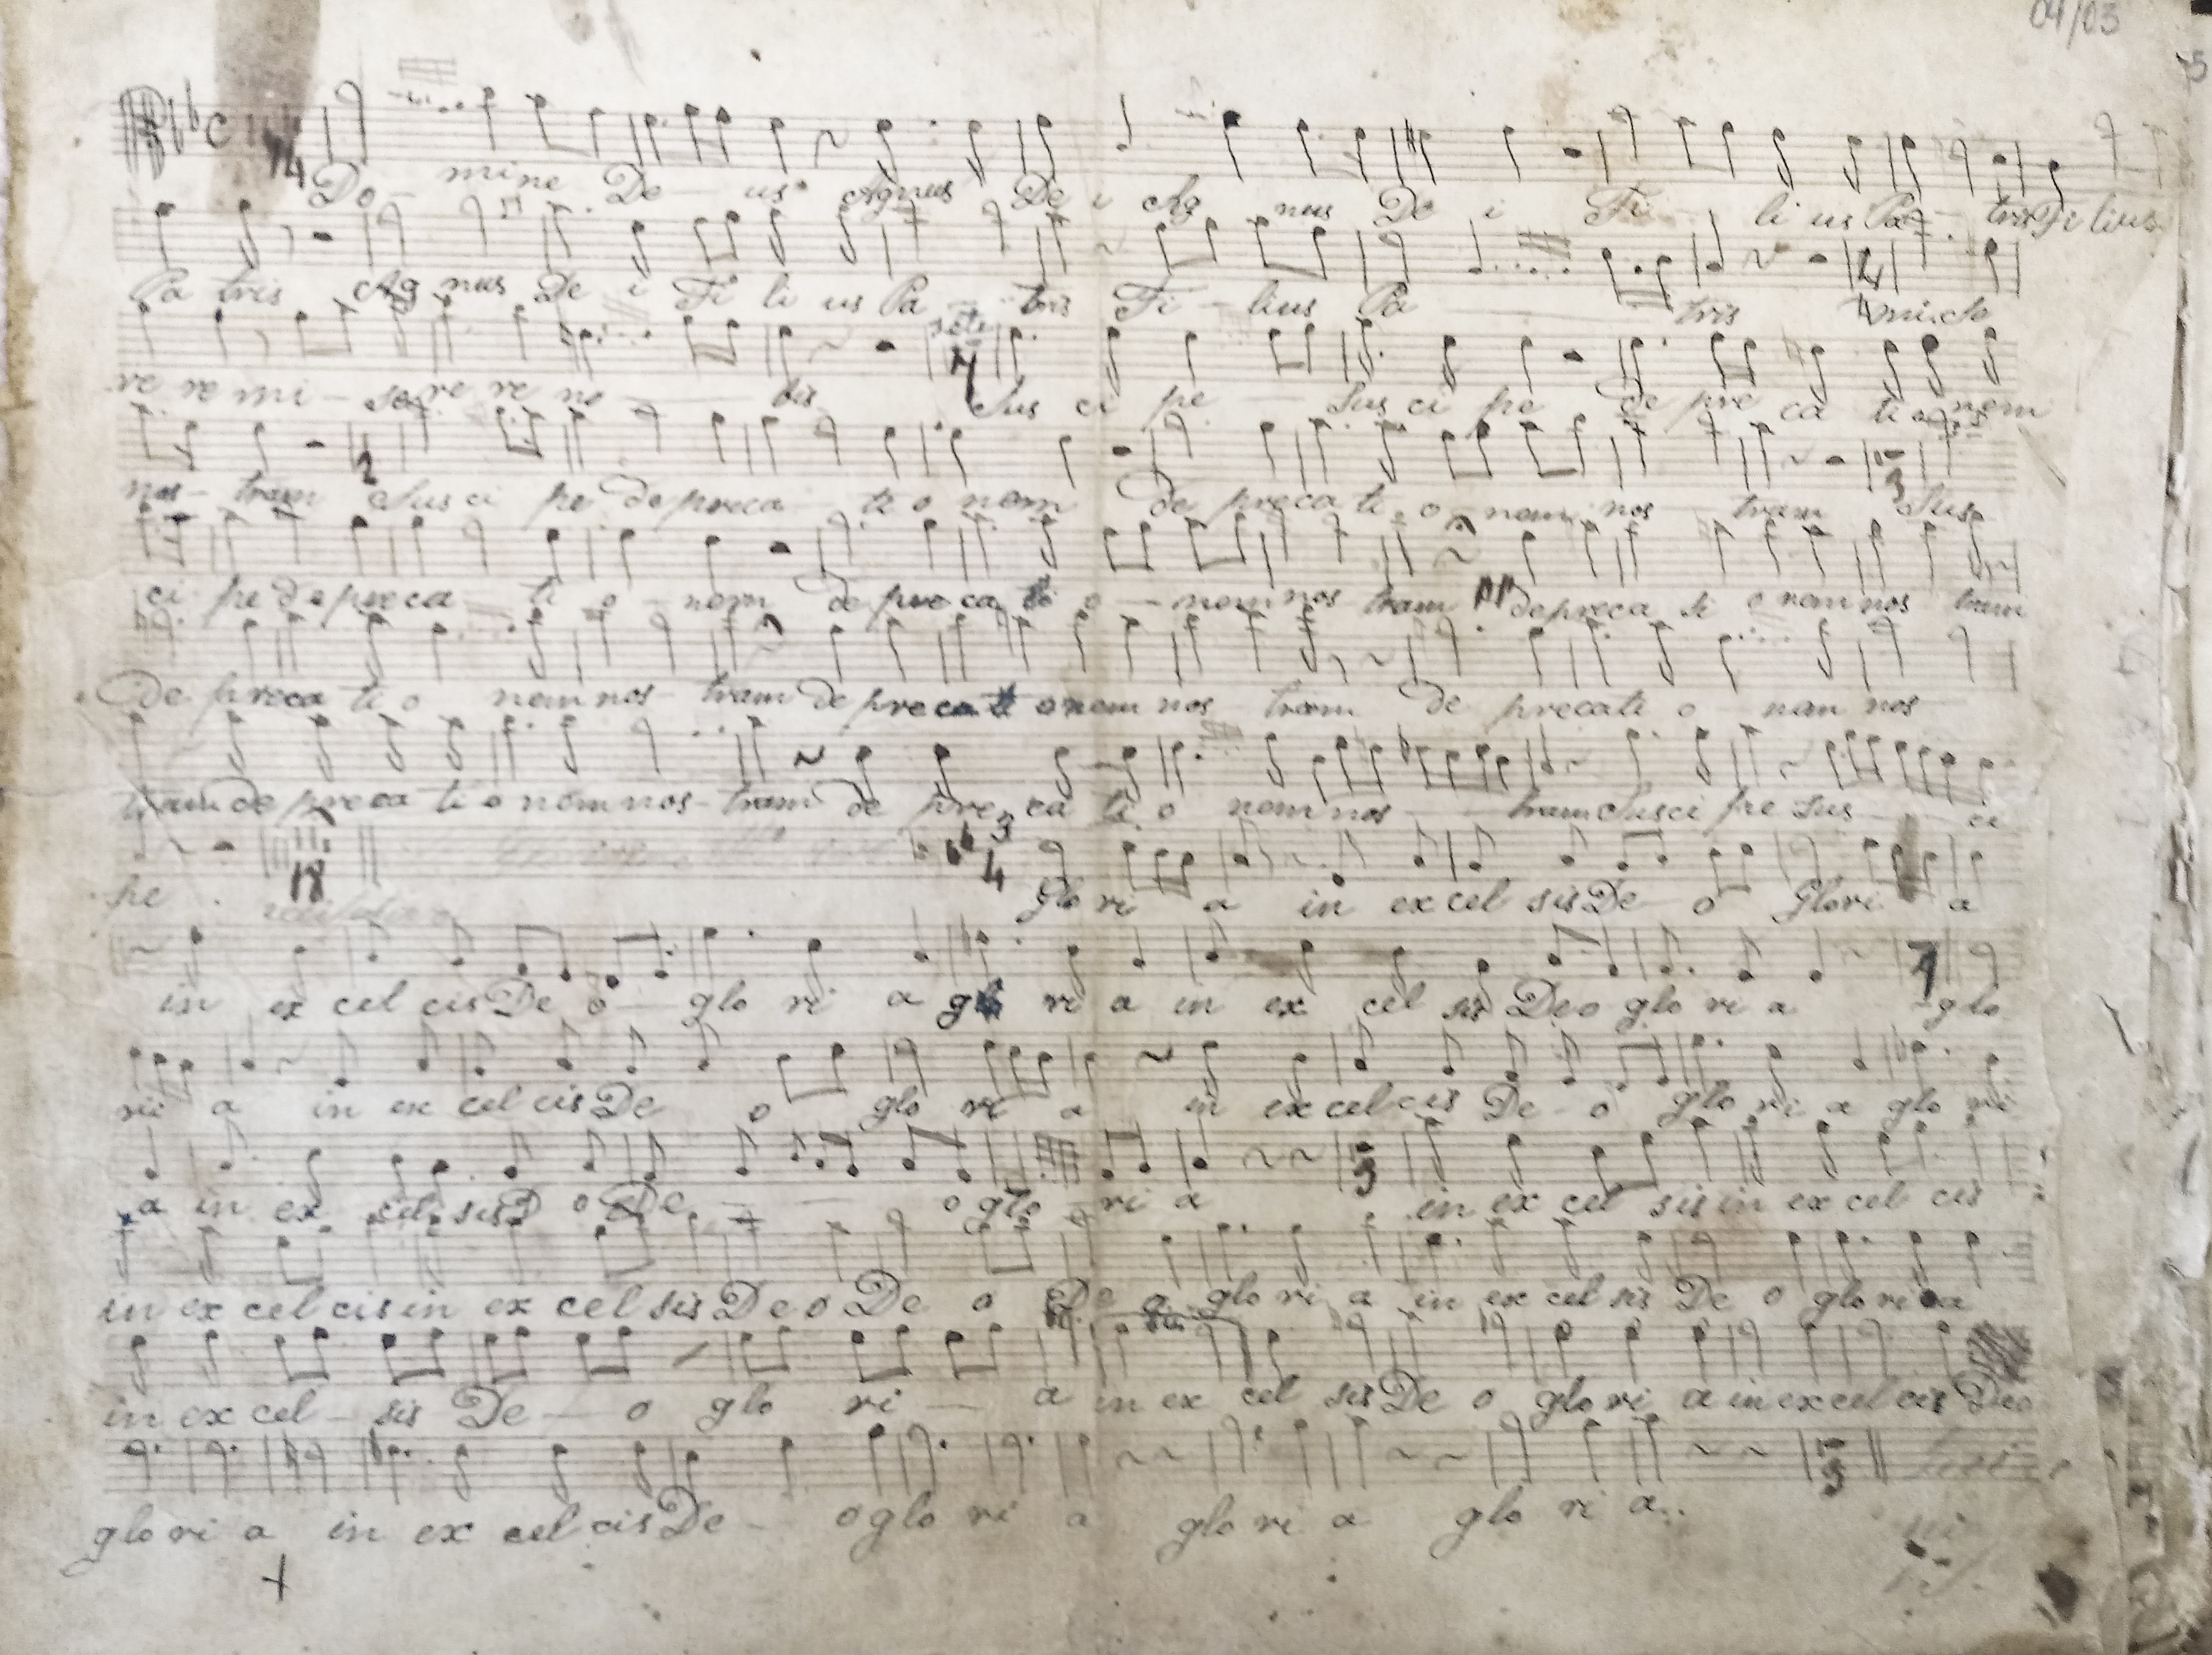 04/03
5
C 14
Do - mine De us Agnus De i Ag nus De i Fi li us Pa - tris Fi lius
Pa tris Ag nus De i Fi li us Pa - tris Fi - lius Pa tris 4 mi.se
re re mi - se re re no bis 7 Sus ci pe Sus ci pe de pre ca ti o nem
nos - tram 2 Sus ci pe de preca ti o nem De preca ti o nem nos tram 3 Sus
ci pe de preca ti o - nem de pre ca ti o - nem nos tram pp depreca ti o nem nos tram
De preca ti o nem nos - tram de preca ti onem nos tram de precati o nem nos
tram de preca ti o nem nos - tram de pre ca ti o nem nos tram Susci pe Sus ci
pe 18 3 4 Glo ri a in ex cel sis De o Glori a
in ex cel cis De o - glo ri a glo ri a in ex cel sis Deo glo ri a 7 - glo
ri a in ex cel cis De o glo ri a in ex cel cis De o glo ri a glo ri
a in ex cel sis D o De o glo ri a 3 in ex cel sis in ex cel cis
in ex cel cis in ex cel sis De o De o De o glo ri a in ex cel sis De o glo ri a
in ex cel - sis De - o glo ri - a in ex cel sis De o glo ri a in ex cel cis Deo
glo ri a in ex cel cis De - o glo ri a glo ri a glo ri a.. 3